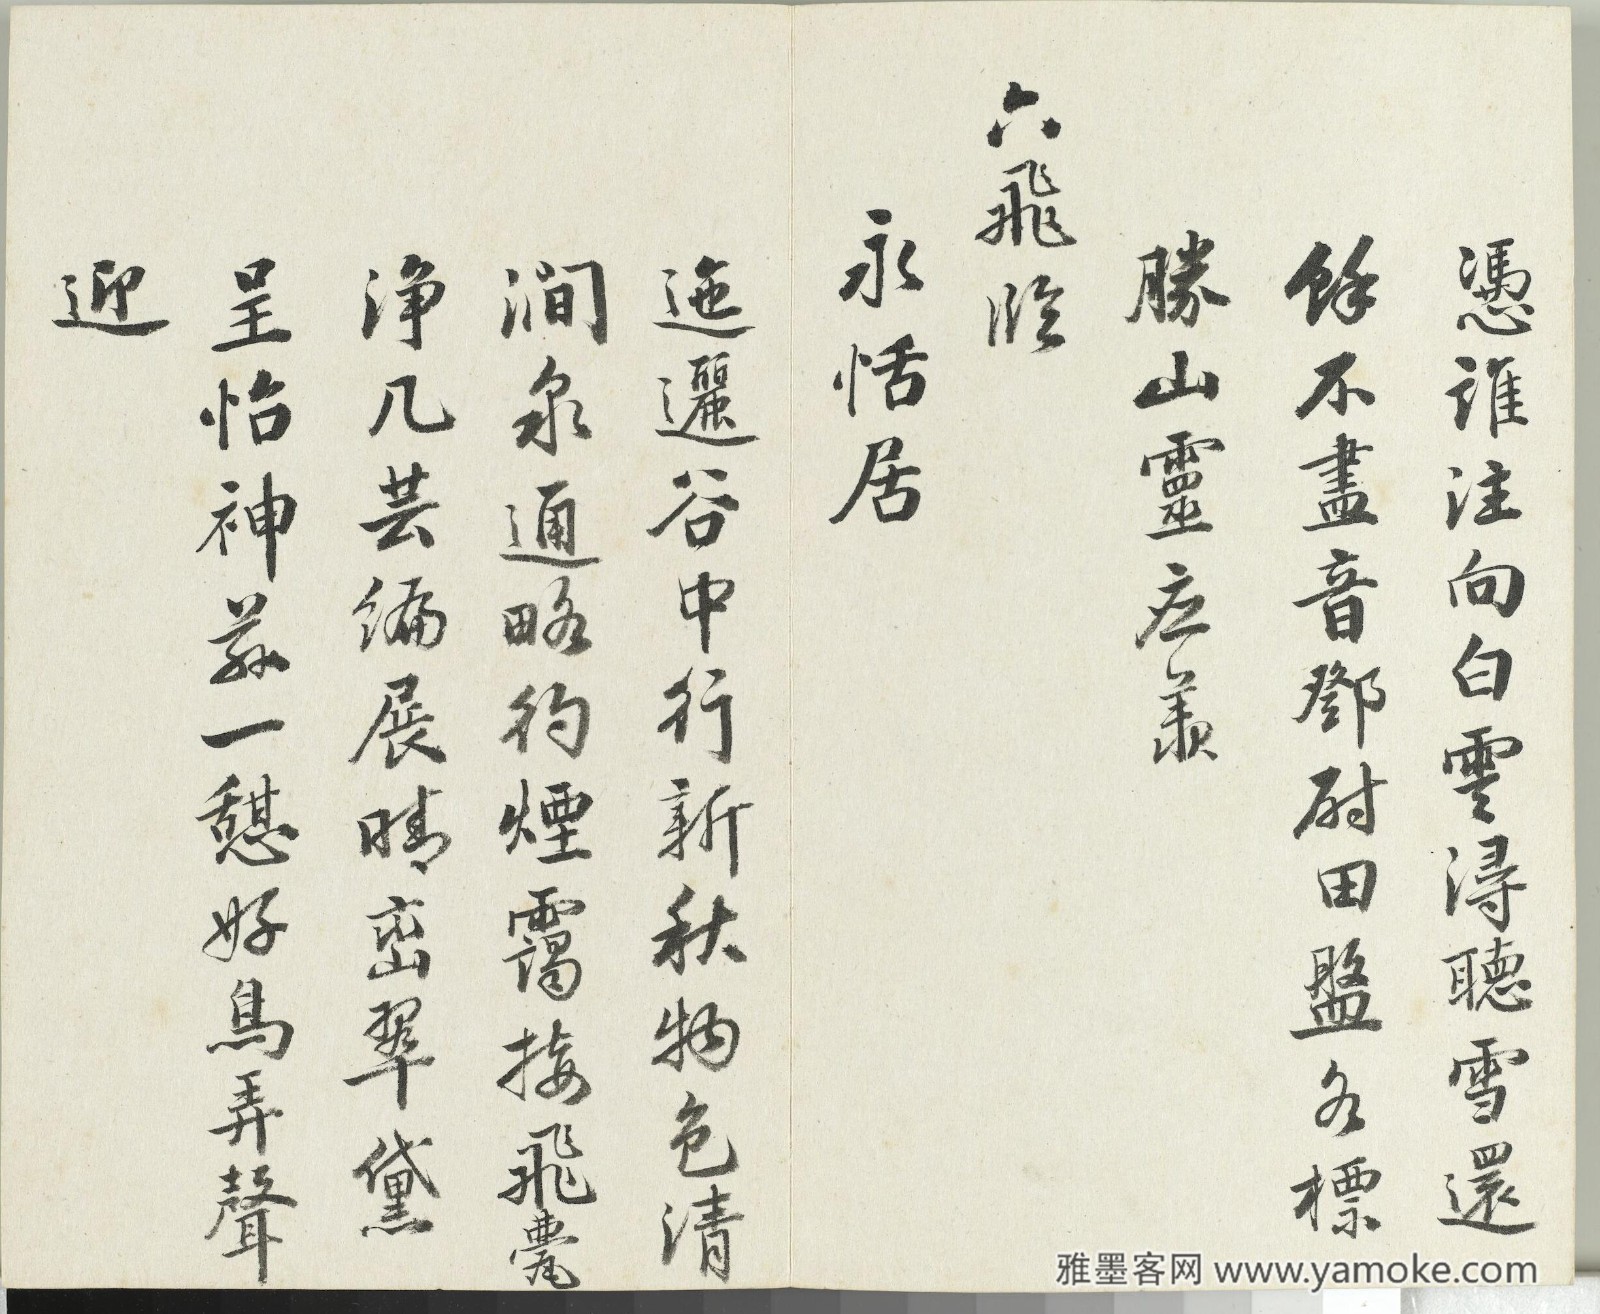 憑誰注向白雲潯聽雪還
餘不盡音鄧尉田盤各標
勝山靈应羨
六飛臨
永恬居
迤邐谷中行新秋物色清
澗泉通略彴煙靄接飛甍
淨几芸編展晴巒翠黛
呈怡神茲一憩好鳥弄聲
迎
雅墨客网 www.yamoke.com